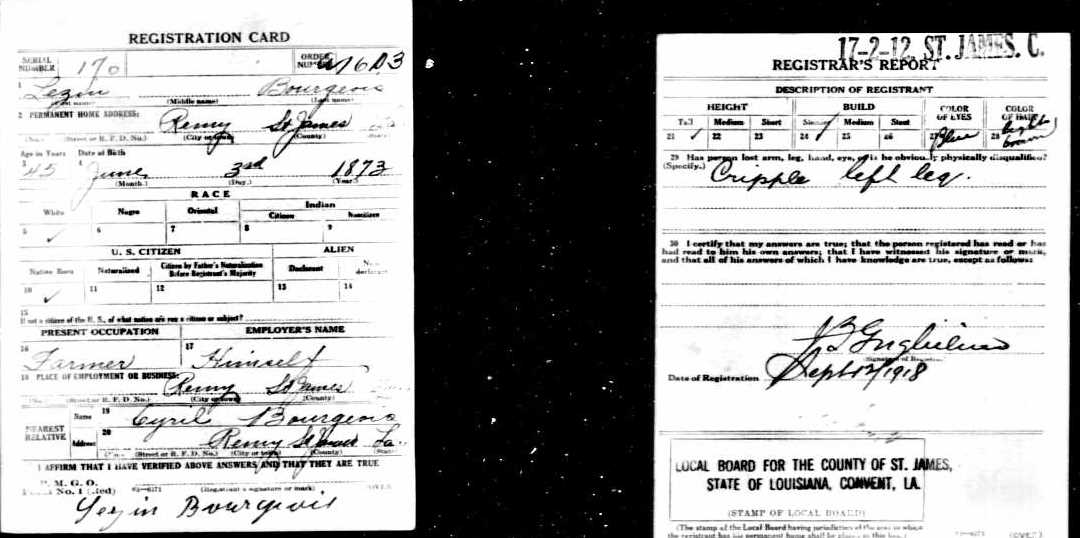 REGISTRATION CARD
SERIAL NUMBER 170 ORDER NUMBER
1 Lezin Bourgeois
(First name) (Middle name) (Last name)
2 PERMANENT HOME ADDRESS:
Remy St James
(No.) (Street or R. F. D. No.) (City or town) (County)
Age in Years Date of Birth
3 45 4 June 3rd 1873
(Month.) (Day.) (Year.)
RACE
White Negro Oriental Indian
Citizen Noncitizen
5 ✓ 6 7 8 9
U. S. CITIZEN ALIEN
Native Born Naturalized Citizen by Father's Naturalization Before Registrant's Majority Declarant Non-declarant
10 ✓ 11 12 13 14
15
If not a citizen of the U. S., of what nation are you a citizen or subject?
PRESENT OCCUPATION EMPLOYER'S NAME
16 Farmer 17 Himself
18 PLACE OF EMPLOYMENT OR BUSINESS:
Remy St James
(No.) (Street or R. F. D. No.) (City or town) (County)
NEAREST RELATIVE
Name 19 Cyril Bourgeois
Address 20 Remy St James La.
(No.) (Street or R. F. D. No.) (City or town) (County) (State)
I AFFIRM THAT I HAVE VERIFIED ABOVE ANSWERS AND THAT THEY ARE TRUE
P. M. G. O.
Form No. 1 (Red) 03—6171 (Registrant's signature or mark) (OVER)
Lezin Bourgeois
17-2-12, ST. JAMES. C.
REGISTRAR'S REPORT
DESCRIPTION OF REGISTRANT
HEIGHT BUILD COLOR OF EYES COLOR OF HAIR
Tall Medium Short Slender Medium Stout
21 ✓ 22 23 24 ✓ 25 26 27 Blue 28 light brown
29 Has person lost arm, leg, hand, eye, or is he obviously physically disqualified?
(Specify.) Cripple left leg.
30 I certify that my answers are true; that the person registered has read or has
had read to him his own answers; that I have witnessed his signature or mark,
and that all of his answers of which I have knowledge are true, except as follows:
(Signature of Registrar)
Date of Registration Sept 12/1918
LOCAL BOARD FOR THE COUNTY OF ST. JAMES,
STATE OF LOUISIANA, CONVENT, LA.
(STAMP OF LOCAL BOARD)
(The stamp of the Local Board having jurisdiction of the area in which
the registrant has his permanent home shall be placed in this box.)
03—6171 (OVER)